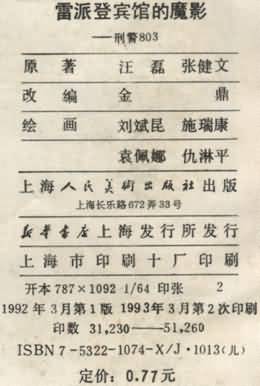 雷派登宾馆的魔影
——刑警803
原著 汪磊 张健文
改编 金鼎
绘画 刘斌昆 施瑞康
袁佩娜 仇淋平
上海人民美術出版社出版
上海长乐路672弄33号
新华书店上海发行所发行
上海市印刷十厂印刷
开本787×1092 1/64 印张 2
1992年3月第1版 1993年3月第2次印刷
印数 31,230——51,260
ISBN7-5322-1074-X/J·1013(儿)
定价: 0.77元